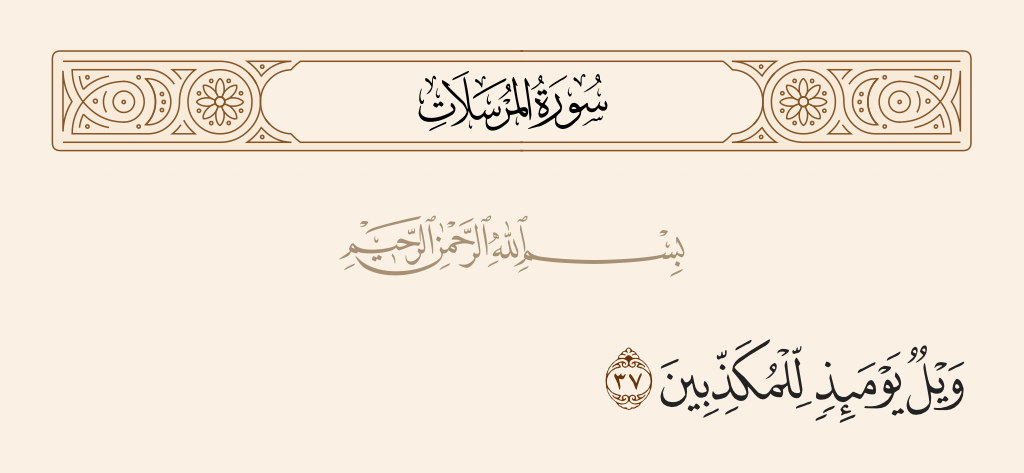 سُورَةُ المُرْسَلَاتِ
بِسْمِ ٱللَّهِ ٱلرَّحْمَٰنِ ٱلرَّحِيمِ
وَيْلٌ يَوْمَئِذٍ لِّلْمُكَذِّبِينَ ٣٧